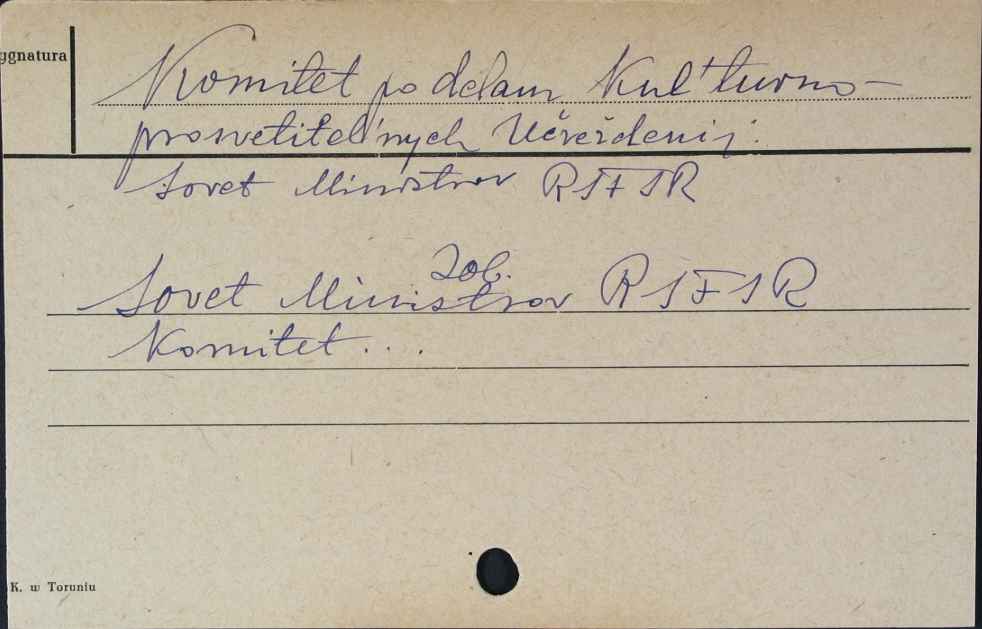 ygnatura
Komitet po delam Kul'turno-
prosvetitel'nych Učreždenij.
Sovet Ministrov RSFSR
zob.
Sovet Ministrov RSFSR
Komitet . . .
K. w Toruniu